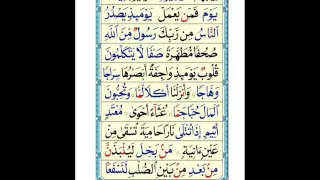 يَوْمَ فَمَنْ يَعْمَلْ يَوْمَئِذٍ يَصْدُرُ
النَّاسُ مِنْ رَبِّكَ رَسُولٌ مِنَ اللهِ
صُحُفًا مُطَهَّرَةً صَفًّا لَا يَتَكَلَّمُونَ
قُلُوبٌ يَوْمَئِذٍ وَاجِفَةٌ اَبْصَارُهَا سِرَاجًا
وَهَّاجًا وَاَنْزَلْنَا اَكْلًا لَمًّا وَتُحِبُّونَ
الْمَالَ حُبًّا جَمًّا غُثَاءً اَحْوٰى مُعْتَدٍ
اَثِيمٍ اِذَا تُتْلٰى نَارًا حَامِيَةً تُسْقٰى مِنْ
عَيْنٍ اٰنِيَةٍ مَنْ بَخِلَ لَيُنْبَذَنَّ
مِنْ بَعْدِ مِنْ بَيْنِ الصُّلْبِ لَنَسْفَعًا